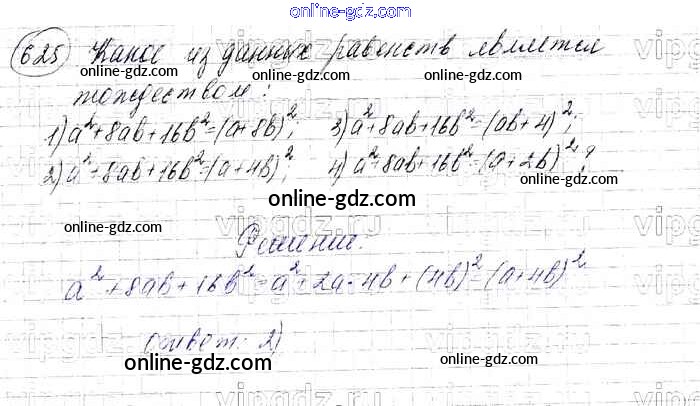 online-gdz.com
625 Какое из данных равенств является
online-gdz.com online-gdz.com
тождеством:
1) a²+8ab+16b²=(a+8b)²; 3) a²+8ab+16b²=(ab+4)²;
2) a²+8ab+16b²=(a+4b)²; 4) a²+8ab+16b²=(a+2b)²?
online-gdz.com
online-gdz.com
online-gdz.com online-gdz.com
Решение.
a²+8ab+16b²=a²+2a·4b+(4b)²=(a+4b)²
online-gdz.com
Ответ: 2)
online-gdz.com online-gdz.com
online-gdz.com